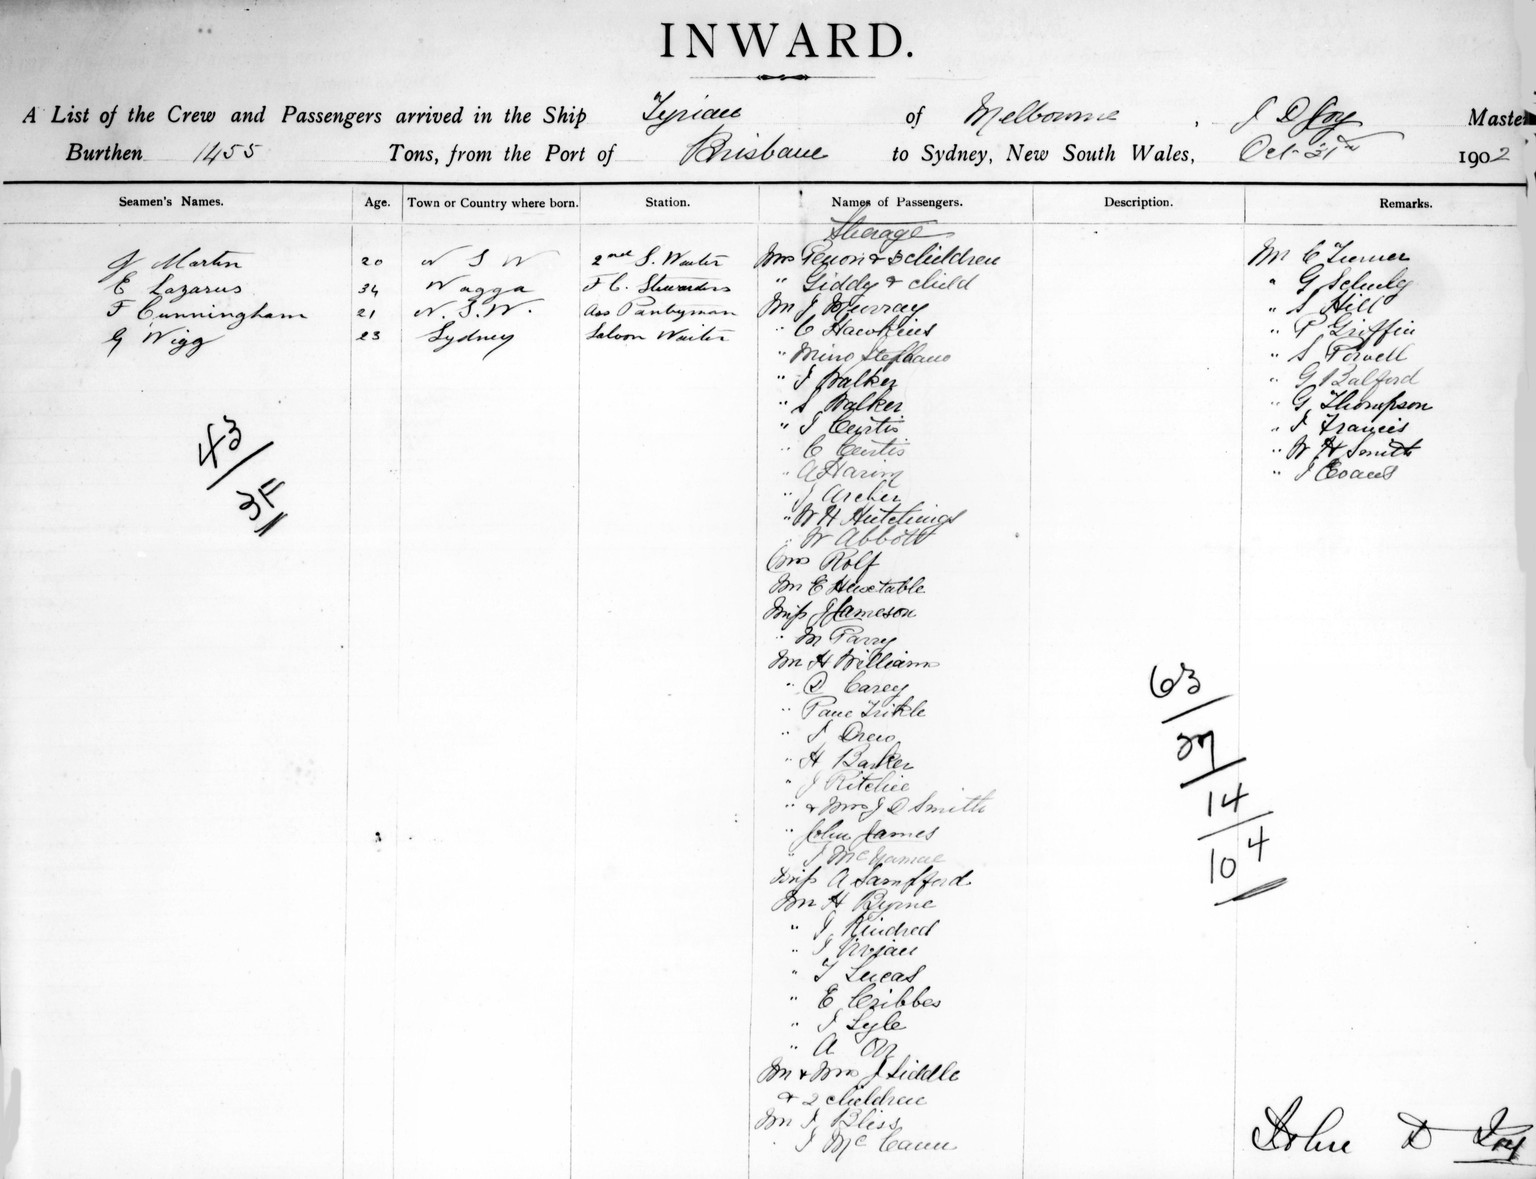 INWARD.
A List of the Crew and Passengers arrived in the Ship Tyrian of Melbourne, J D Joy Master
Burthen 1455 Tons, from the Port of Brisbane to Sydney, New South Wales, Oct 31st 1902
Seamen's Names. Age. Town or Country where born. Station. Names of Passengers. Description. Remarks.
Steerage
J Martin 20 N S W 2nd S. Waiter
E Lazarus 34 Wagga F C. Stewardess
F Cunningham 21 N. S. W. Ass Pantryman
G Wigg 23 Sydney Saloon Waiter
43
3F
Mrs & 3 children
" Giddy & child
Mr J Murray
" C Hawkins
" Stephano
" J Walker
" S Walker
" J Curtis
" C Curtis
" A
" J Archer
" W H Hutchings
" W Abbott
Mrs Rolf
Mr E Huxtable
Miss J Jameson
" M Parry
Mr H Williams
" D Carey
"
" J Drew
" H Barker
" J Ritchie
" & Mrs J D Smith
" John James
" J McNamae
Miss A Sampford
Mr H Byrne
" J Kindred
" J Vivian
" T Lucas
" E Cribbes
" J Lyle
" A Orr
Mr & Mrs J Siddle
& 2 children
Mr J Bliss
" J McCann
Mr C Turner
" G Schuly
" S Hill
" P Griffin
" S Powell
" G Balford
" G Thompson
" J Francis
" W H Smith
" J Evans
63
27
14
104
John D Joy